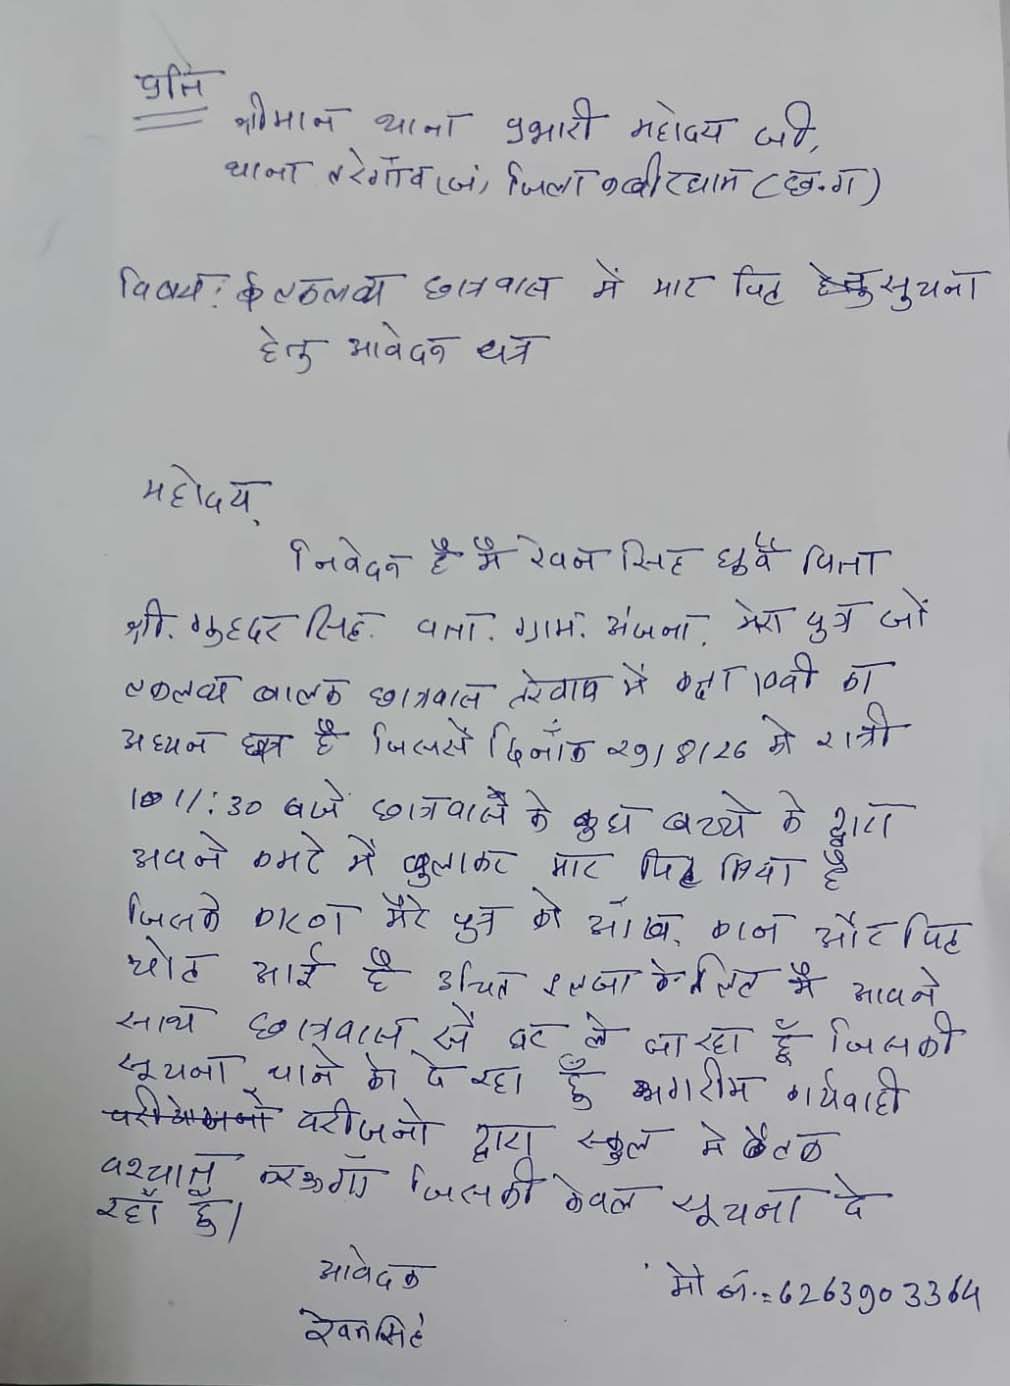 प्रति
श्रीमान थाना प्रभारी महोदय जी,
थाना तरेगाँव (जं) जिला कबीरधाम (छ.ग)
विषय: एकलव्य छात्रवास में मार पिट सुचना
हेतु आवेदन पत्र
महोदय,
निवेदन है मै रेवन सिंह धुर्वे पिता
श्री. सिंह. पता. ग्राम. अंजना, मेरा पुत्र जों
एकलव्य बालक छात्रवास में कक्षा 10वी का
अध्यन है जिससे दिनाँक 29/8/26 को रात्री
11:30 बजे छात्रवास के कुछ बच्चो के द्वारा
अपने कमरे में बुलाकर मार पिट किया है
जिसके कारण मेरे पुत्र को आँख, कान और पिठ
चोट आई है उचित के लिए मै अपने
साथ छात्रवास से घर ले जा रहा हूँ जिसकी
सूचना थाने को दे रहा हुँ अगरीम कार्यवाही
परीजनो द्वारा स्कुल मे बैठक
पश्चात् करूगाँ जिसकी केवल सूचना दे
रहाँ हुँ।
आवेदक
रेवनसिंह
मो नं.:= 6263903364